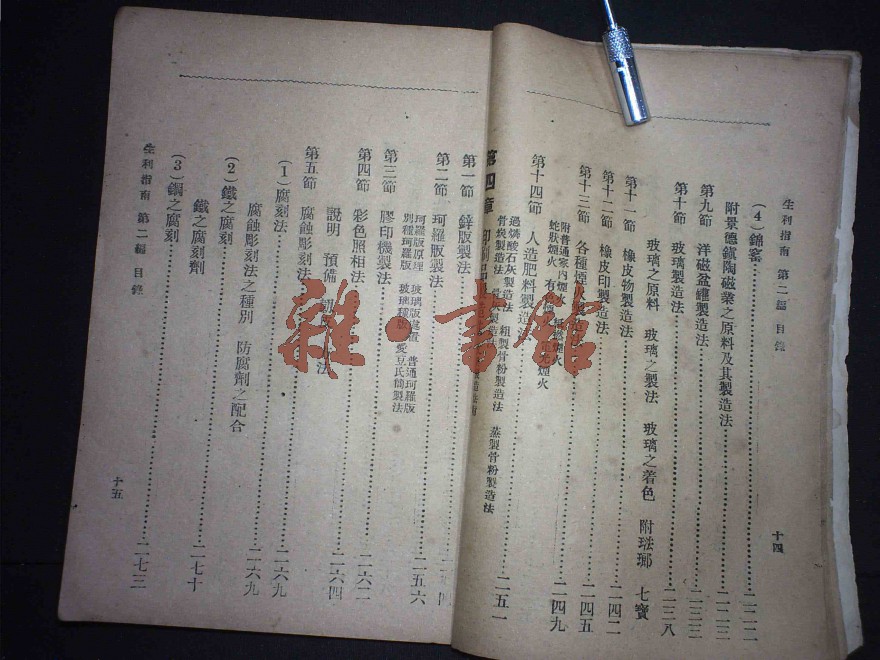 生利指南 第二編 目錄
(4)錦窰……二二二
附景德鎮陶磁業之原料及其製造法……二二三
第九節 洋磁盆罐製造法……二三三
第十節 玻璃製造法……二三八
玻璃之原料 玻璃之製法 玻璃之着色 附琺瑯 七寶
第十一節 橡皮物製造法……二四二
第十二節 橡皮印製造法……二四五
第十三節 各種煙火製造法……二四九
附普通家內煙火
蛇狀煙火
第十四節 人造肥料製造法……二五一
過燐酸石灰製造法 粗製骨粉製造法 蒸製骨粉製造法
骨炭製造法
第四章
第一節 鋅版製法
第二節 珂羅版製法……二五六
珂羅版原理 玻璃版 普通珂羅版
別種珂羅版 製法
第三節 膠印機製法……二六二
第四節 彩色照相法……二六四
說明 預備 法
第五節 腐蝕彫刻法……二六九
(1)腐刻法……二六九
腐蝕彫刻法之種別 防腐劑之配合
(2)鐵之腐刻
鐵之腐刻劑……二七十
(3)鋼之腐刻……二七三
生利指南 第二編 目錄
十五
十四
雜·書館